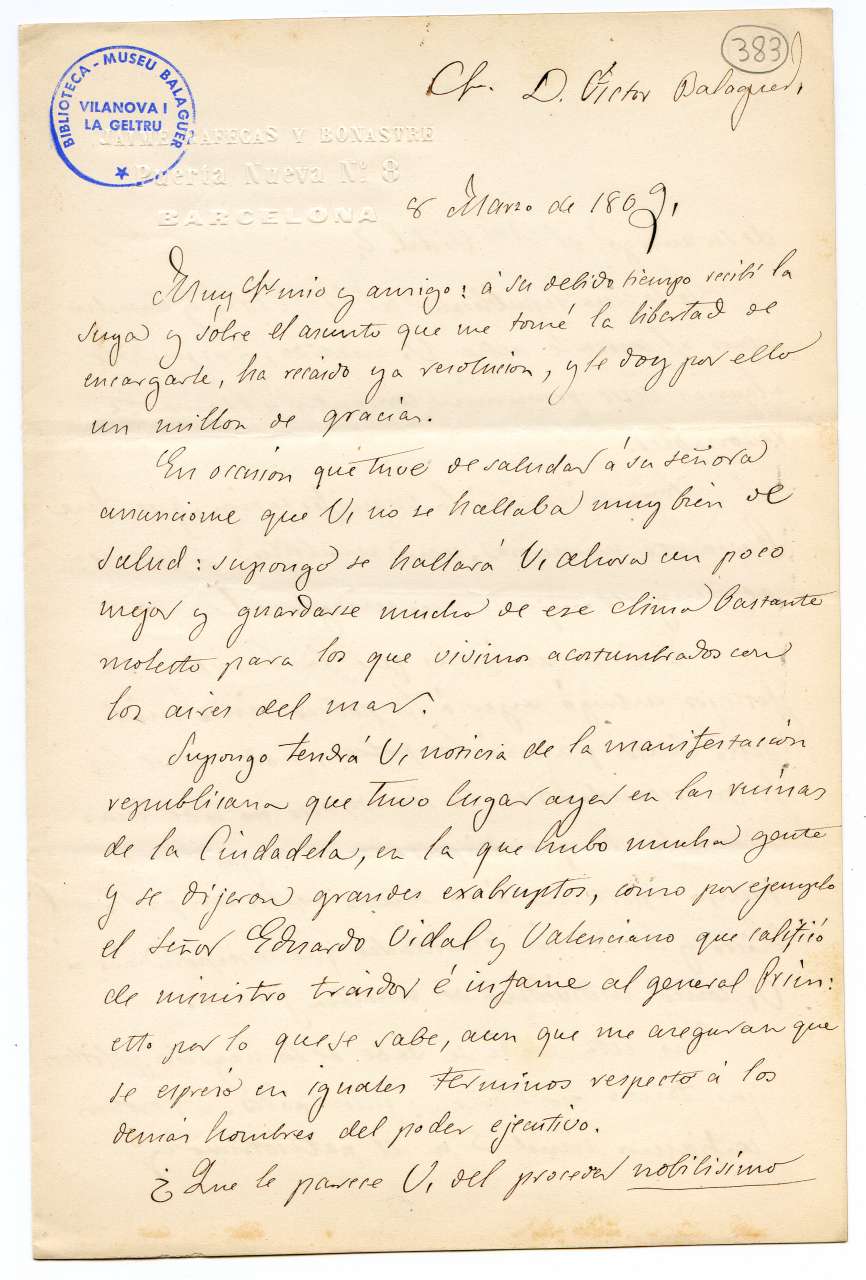 383
Sr. D. Víctor Balaguer.
BIBLIOTECA - MUSEU BALAGUER
VILANOVA I
LA GELTRU
JAIME RAFECAS Y BONASTRE
Puerta Nueva Nº 8
BARCELONA
8 Marzo de 1869.
Muy Sr mio y amigo: á su debido tiempo recibí la
suya y sóbre el asunto que me tomé la libertad de
encargarle, ha recaido ya resolucion, y le doy por ello
un millon de gracias.
En ocasion que tuve de saludar á su señora
anunciome que V. no se hallaba muy bien de
salud: supongo se hallará V. ahora un poco
mejor y guardarse mucho de ese clima bastante
molesto para los que vivimos acostumbrados con
los aires del mar.
Supongo tendrá V. noticia de la manifestación
republicana que tuvo lugar ayer en las ruinas
de la Ciudadela, en la que hubo mucha gente
y se dijeron grandes exabruptos, como por ejemplo
el señor Eduardo Vidal y Valenciano que calificó
de ministro traidor é infame al general Prim:
esto por lo que se sabe, aun que me aseguran que
se espresó en iguales terminos respecto á los
demás hombres del poder ejecutivo.
¿Que le parece V. del proceder nobilisimo